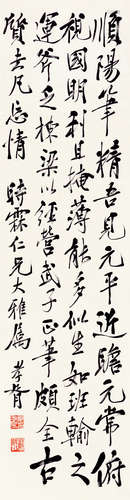 順陽筆精吾見元平近瞻元常俯
視國明利且掩薄能多似生如班輸之
運斧乏棟梁以經營武子正筆頗全古
質去凡忘情 時霖仁兄大雅屬 孝胥